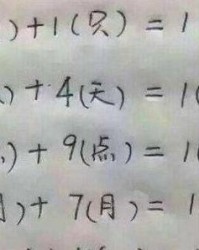 )+1(只) = 1
)+4(天) = 1(
)+9(点) = 1(
)+ 7(月) = 1